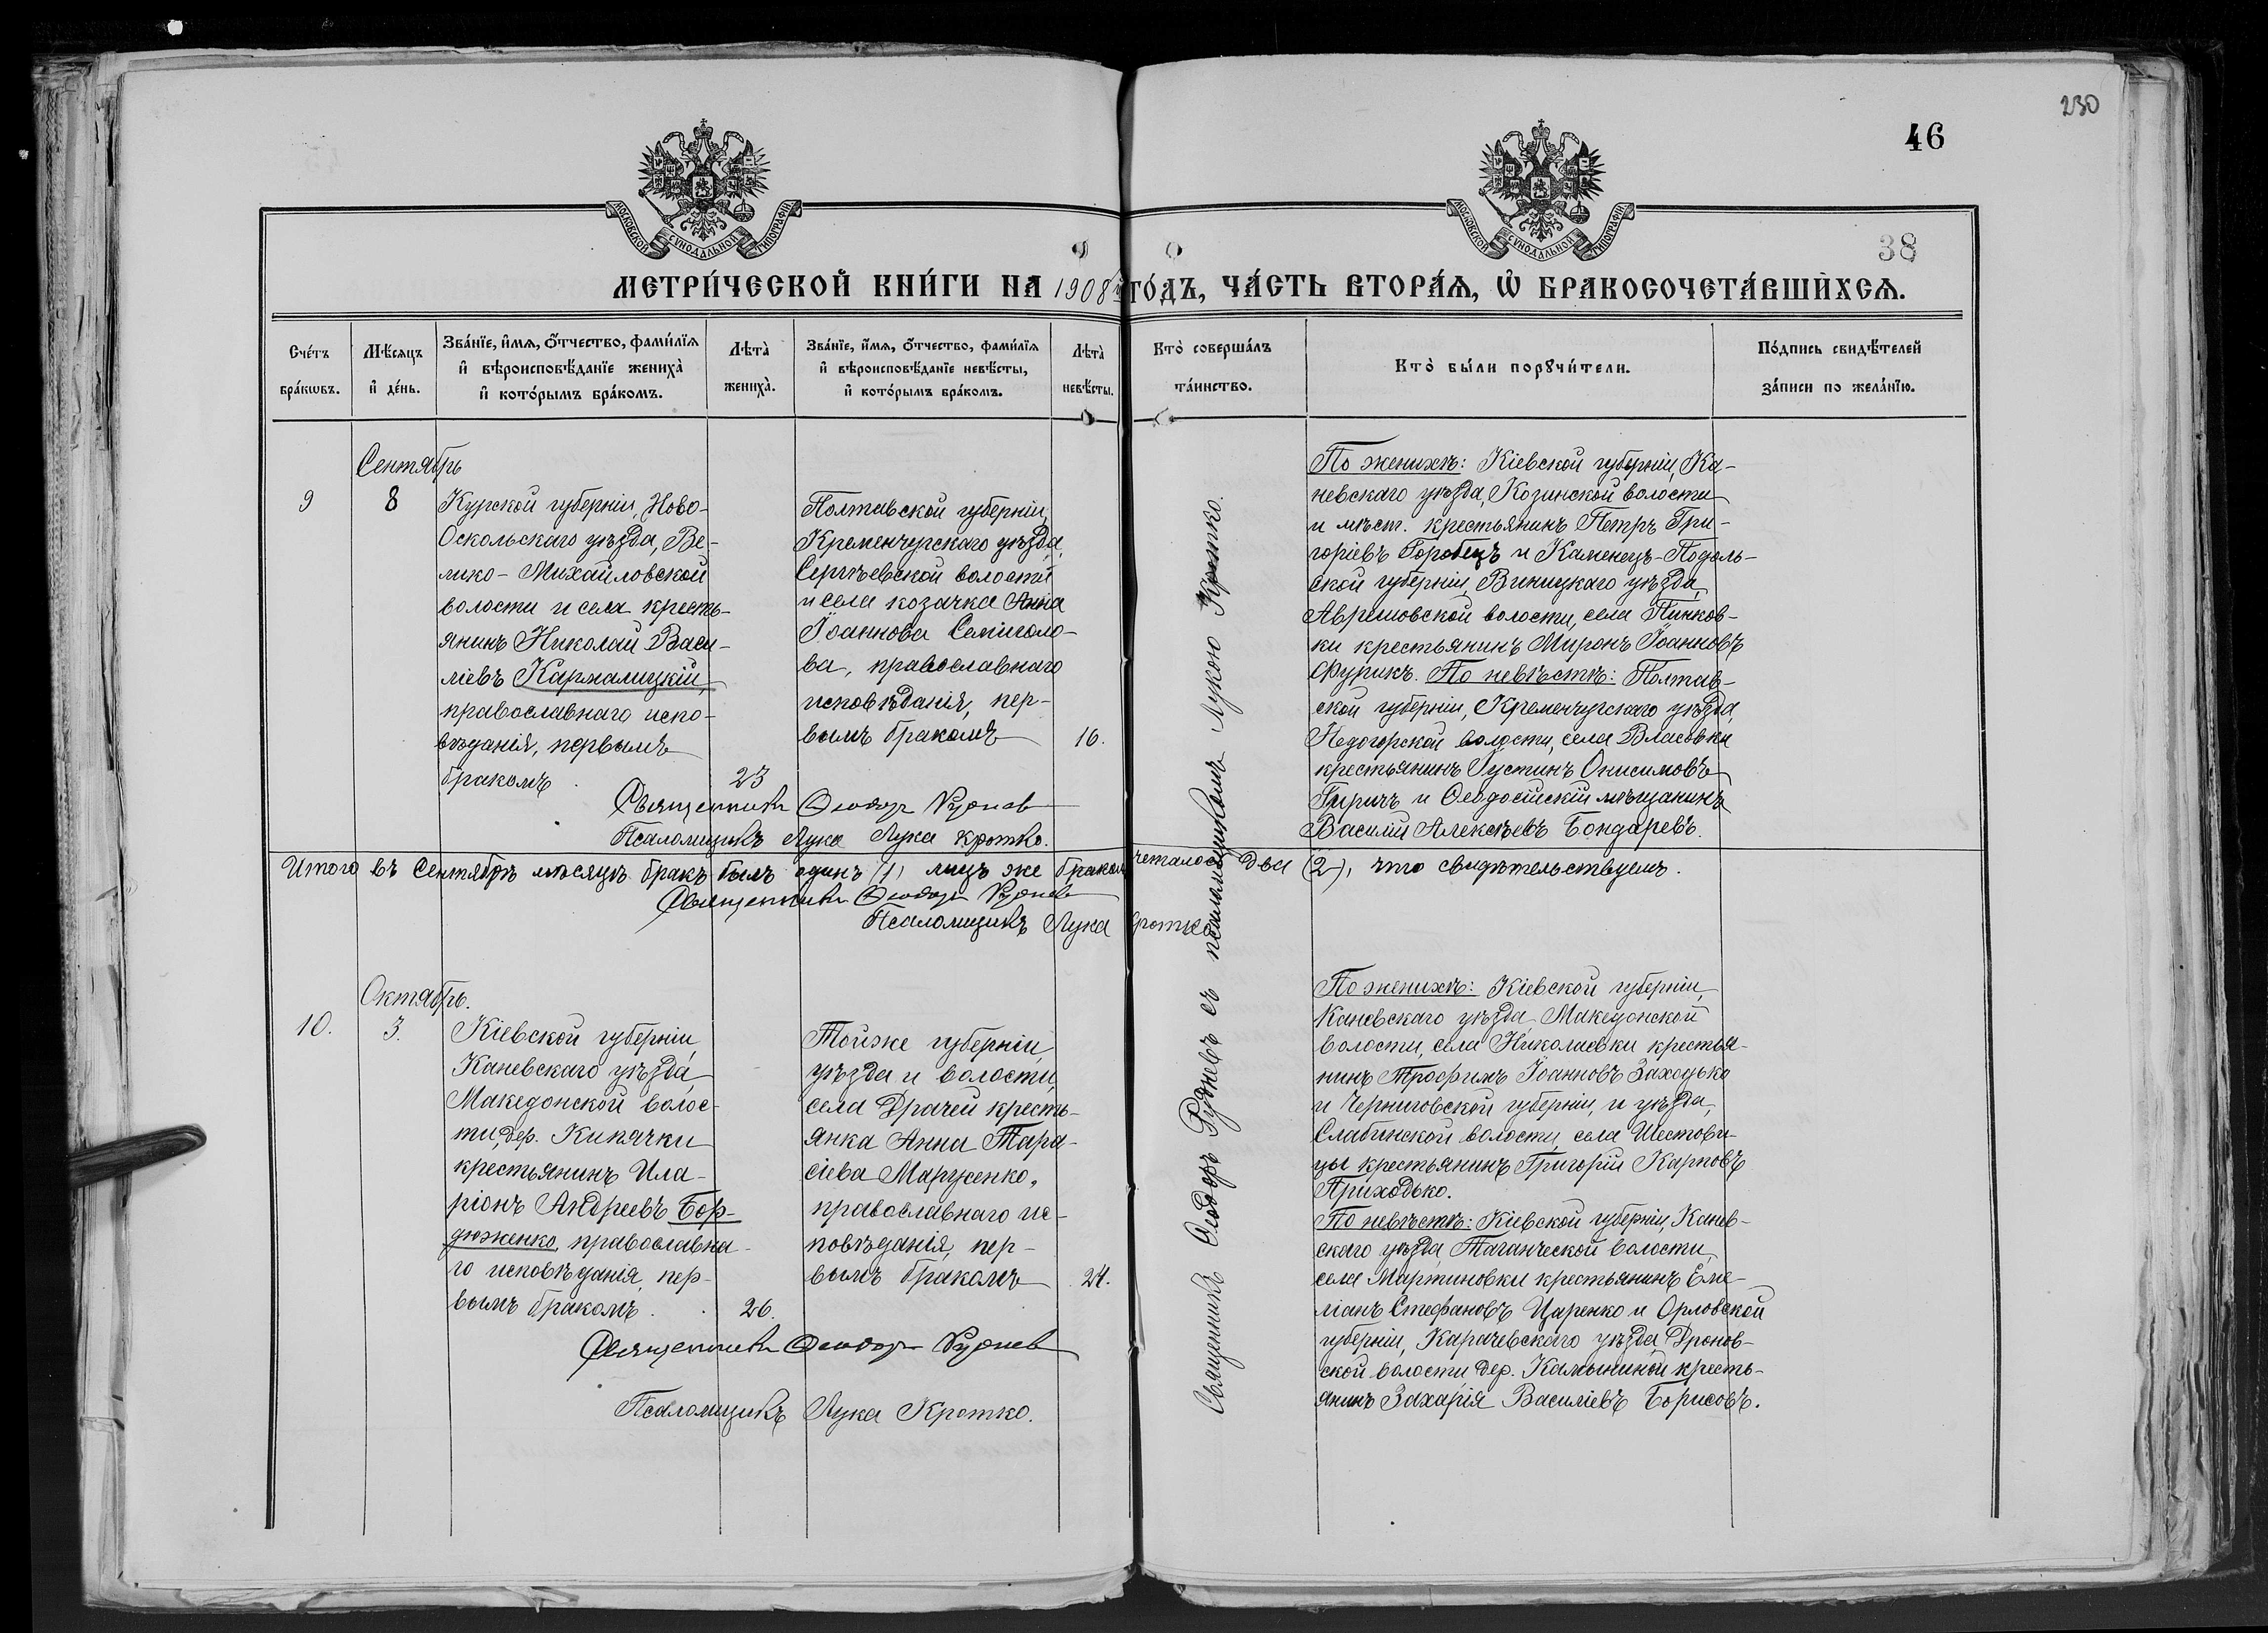 230
46
38
МОСКОВСКОЙ СУНОДАЛЬНОЙ ТИПОГРАФІИ
МОСКОВСКОЙ СУНОДАЛЬНОЙ ТИПОГРАФІИ
МЕТРИ́ЧЕСКОЙ КНИ́ГИ НА 1908й ГО́ДЪ, ЧА́СТЬ ВТОРА́Ѧ, Ѽ БРАКОСОЧЕТА́ВШИХСѦ.
Сче́тъ бра́кѡвъ.
Мѣ́сяцъ и҆ де́нь.
Зва́нїе, и҆́мѧ, ѻ҆́тчество, фами́лїѧ
и҆ вѣроисповѣ́данїе жениха̀
и҆ кото́рымъ бра́комъ.
Лѣта̀ жениха̀.
Зва́нїе, и҆́мѧ, ѻ҆́тчество, фами́лїѧ
и҆ вѣроисповѣ́данїе невѣ́сты,
и҆ кото́рымъ бра́комъ.
Лѣта̀ невѣ́сты.
Кто̀ соверша́лъ та́инство.
Кто̀ бы́ли порꙋчи́тели.
По́дпись свидѣ́телей
за́писи по жела́нїю.
Сентябрь
9
8
Курской губерніи, Ново-
Оскольскаго уѣзда, Ве-
лико-Михайловской
волости и села кресть-
янинъ Николай Васи-
ліевъ Кармалицкій,
православнаго испо-
вѣданія, первымъ
бракомъ.
23
Полтавской губерніи,
Кременчугскаго уѣзда,
Сергѣевской волости
и села козачка Анна
Іоаннова Семиголо-
ва, православнаго
исповѣданія, пер-
вымъ бракомъ
16.
Священникъ Ѳеодоръ Руднев
Псаломщикъ Лука Лука Кротко.
По женихѣ: Кіевской губерніи, Ка-
невскаго уѣзда, Козинской волости
и мѣст. крестьянинъ Петръ Гри-
горіевъ Горобецъ и Каменецъ-Подоль-
ской губерніи, Виницкаго уѣзда,
волости, села Пинков-
ки крестьянинъ Миронъ Іоанновъ
Фурикъ. По невѣстѣ: Полтав-
ской губерніи, Кременчугскаго уѣзда,
Недогорской волости, села Власовки
крестьянинъ Іустинъ Онисимовъ
Гиричъ и Ѳеодосійскій мѣщанинъ
Василій Алексѣевъ Бондаревъ.
Итого въ Сентябрѣ мѣсяцѣ бракъ былъ одинъ (1) лицъ же бракосочеталось два (2), что свидѣтельствуемъ.
Священникъ Ѳеодоръ Руднев
Псаломщикъ Лука Кротко
Священникъ Ѳеодоръ Рудневъ съ псаломщикомъ Лукою Кротко.
Октябрь.
10.
3.
Кіевской губерніи
Каневскаго уѣзда,
Македонской волос-
ти, дер. Кипячки
крестьянинъ Ила-
ріонъ Андреевъ Бор-
дюженко, православна-
го исповѣданія, пер-
вымъ бракомъ.
26.
Тойже губерніи,
уѣзда и волости,
села Драчей кресть-
янка Анна Тара-
сіева Марусенко,
православнаго ис-
повѣданія, пер-
вымъ бракомъ
24.
Священникъ Ѳеодоръ Руднев
Псаломщикъ Лука Кротко.
По женихѣ: Кіевской губерніи,
Каневскаго уѣзда, Македонской
волости, села Николаевки крестья-
нинъ Трофимъ Іоанновъ Заходько
и Черниговской губерніи, и уѣзда,
Слабинской волости, села Шестови-
цы крестьянинъ Григорій Карповъ
Приходько.
По невѣстѣ: Кіевской губерніи, Канев-
скаго уѣзда, Таганческой волости,
села Мартиновки крестьянинъ Еме-
ліанъ Стефановъ Царенко и Орловской
губерніи, Карачевскаго уѣзда, Дронов-
ской волости дер. Камыниной кресть-
янинъ Захарія Василіевъ Борисовъ.